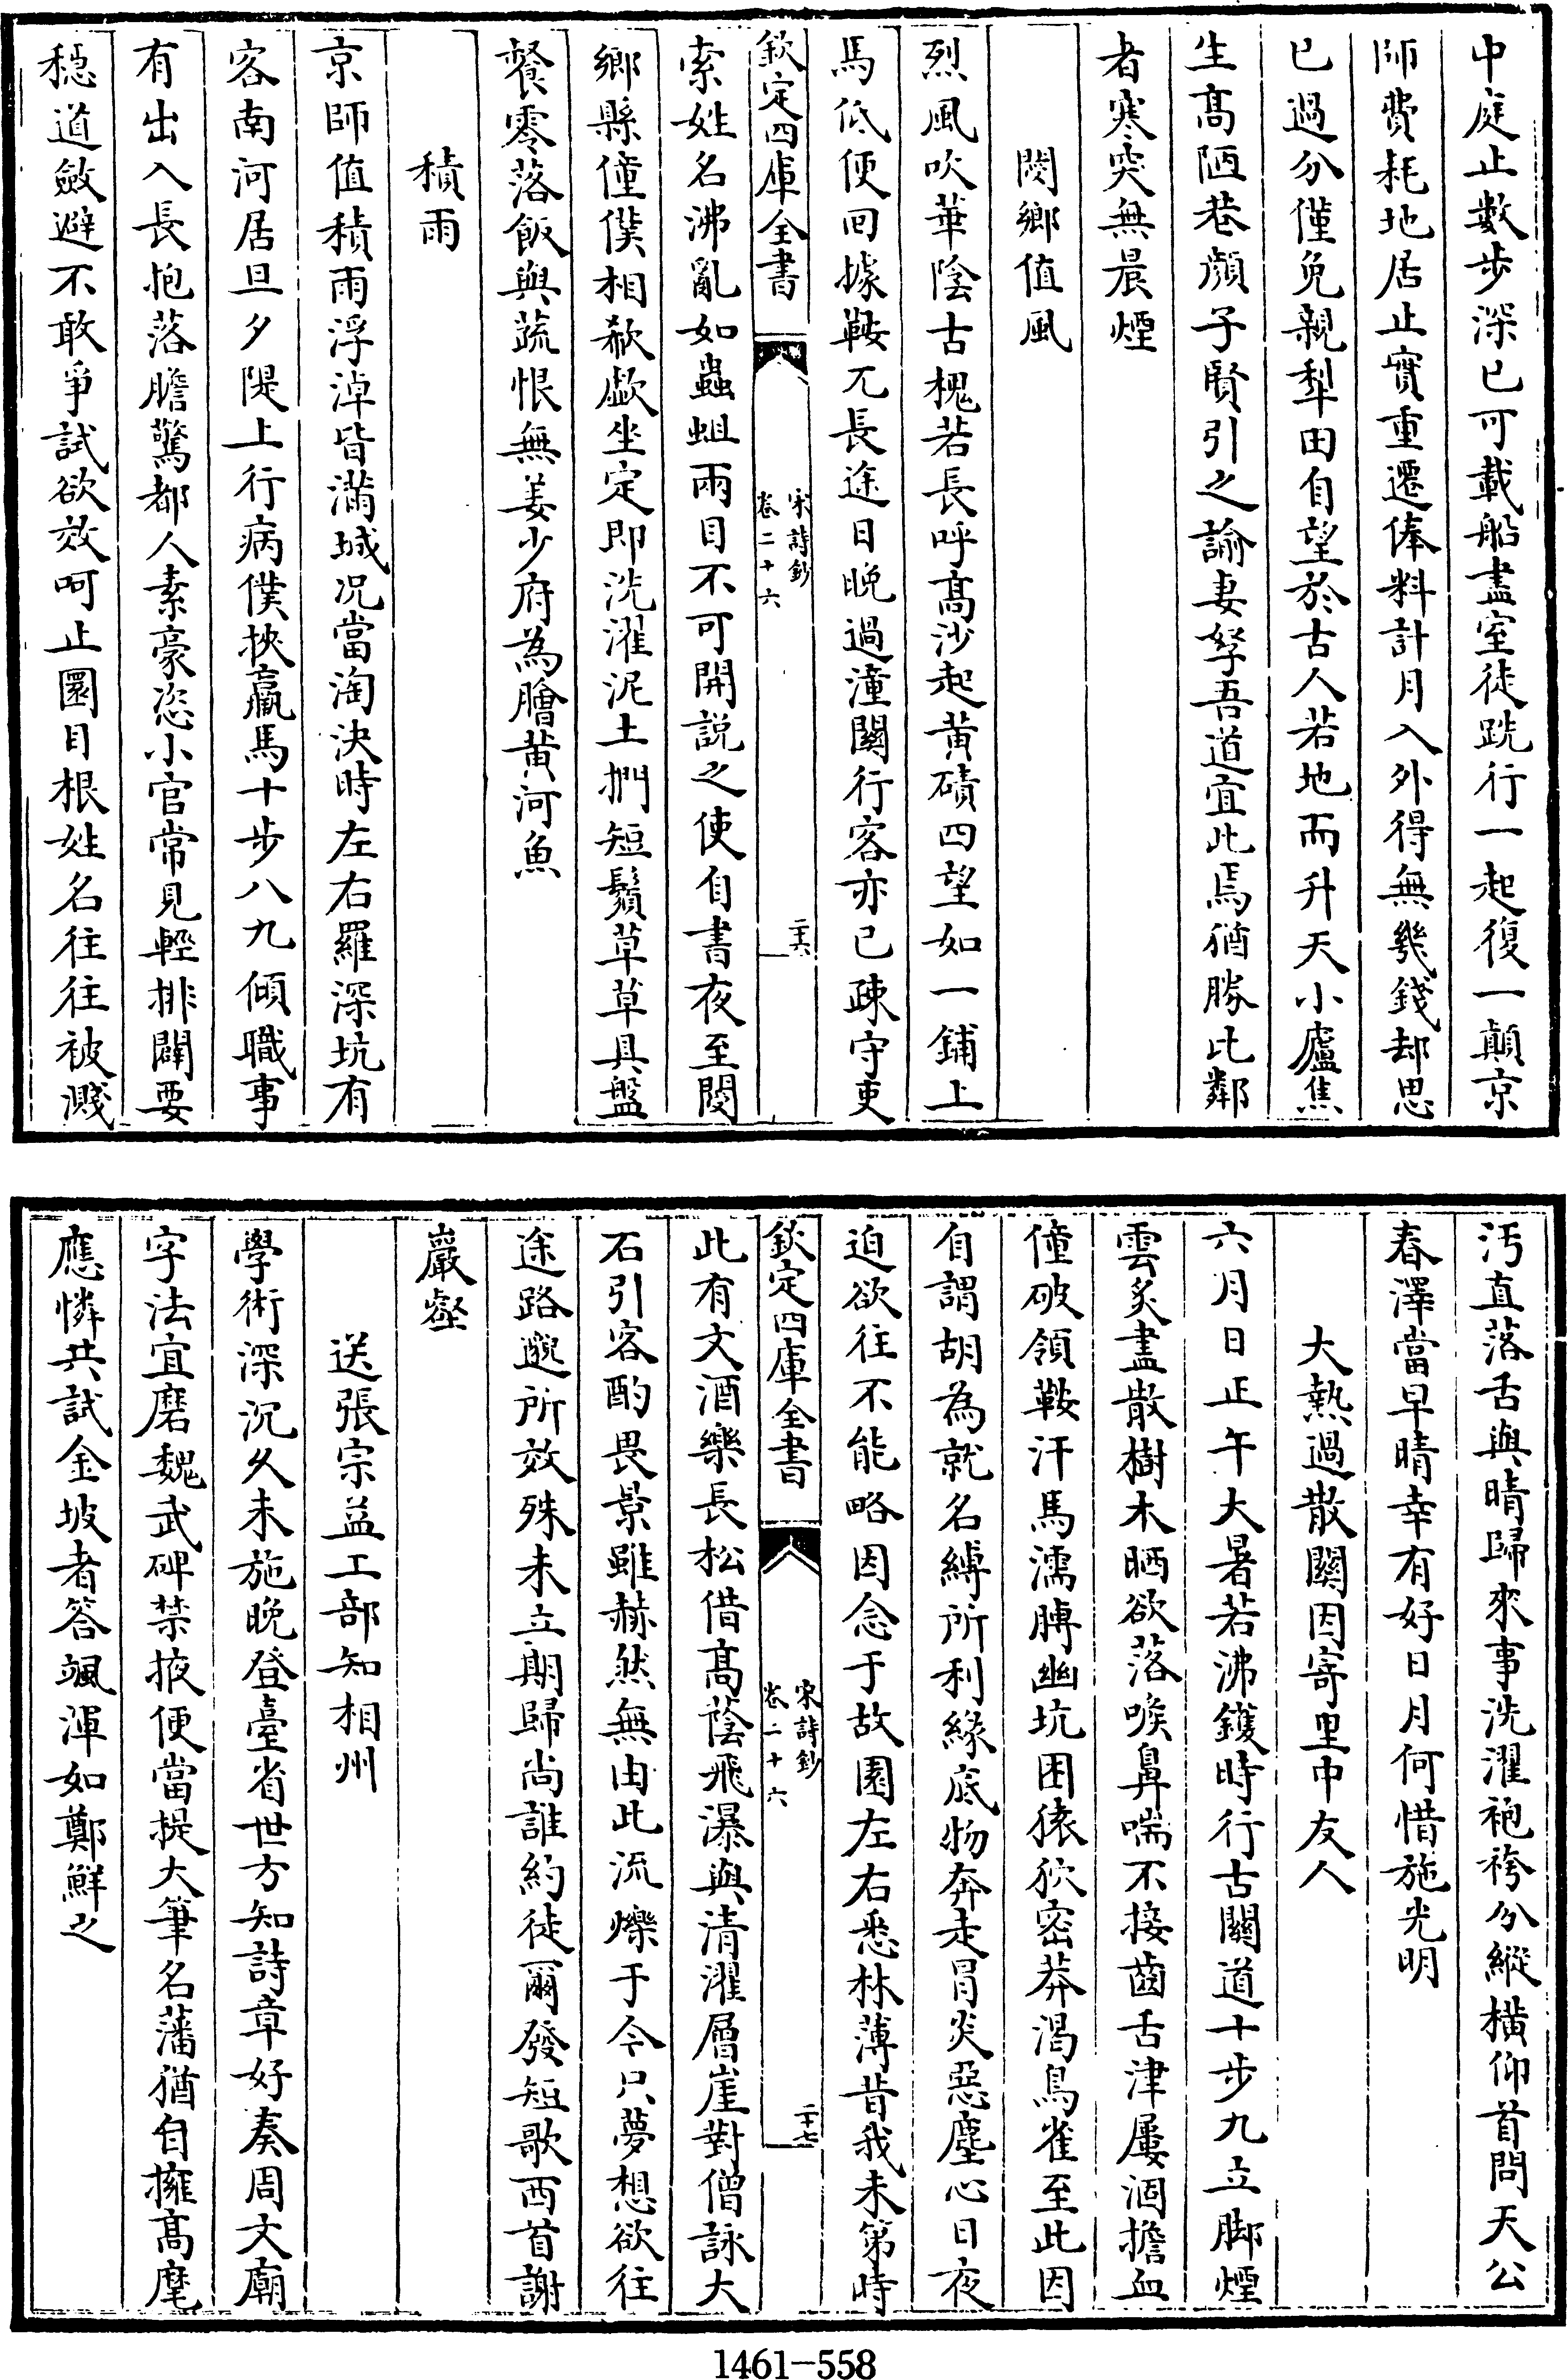 中庭止數步深已可載船盡室徒跣行一起復一顛京
師費耗地居止實重遷俸料計月入外得無幾錢却思
已過分僅免親犁田自望於古人若地而升天小廬焦
生髙陋巷顔子賢引之諭妻孥吾道宜此焉猶勝比鄰
者寒突無晨煙
閿鄉值風
烈風吹華陰古槐若長呼髙沙起黄磧四望如一鋪上
馬低便回據鞍兀長途日晚過潼關行客亦已疎守吏
欽定四庫全書
宋詩鈔
卷二十六
二十六
索姓名沸亂如蟲蛆兩目不可開説之使自書夜至閿
鄉縣僮僕相欷歔坐定即洗濯泥土捫短鬚草草具盤
餐零落飯與蔬恨無姜少府為膾黄河魚
積雨
京師值積雨浮淖皆滿城况當淘決時左右羅深坑有
客南河居旦夕隄上行病僕挾羸馬十步八九傾職事
有出入長抱落膽驚都人素豪恣小官常見輕排闢要
穏道斂避不敢爭試欲效呵止圜目根姓名往往被濺
汚直落舌與睛歸來事洗濯袍袴分縱横仰首問天公
春澤當早晴幸有好日月何惜施光明
大熱過散關因寄里中友人
六月日正午大暑若沸鑊時行古關道十步九立脚煙
雲炙盡散樹木晒欲落喉鼻喘不接齒舌津屢涸擔血
僮破領鞍汗馬濡膊幽坑困猿狖密莽渇鳥雀至此因
自謂胡為就名縛所利緣底物奔走冐炎惡塵心日夜
迫欲往不能略因念于故園左右悉林薄昔我未第時
欽定四庫全書
宋詩鈔
卷二十六
二十七
此有文酒樂長松借髙蔭飛瀑與清濯層崖對僧詠大
石引客酌畏景雖赫然無由此流爍于今只夢想欲往
途路邈所效殊未立期歸尚誰約徒爾發短歌西首謝
巖壑
送張宗益工部知相州
學術深沉久未施晚登臺省世方知詩章好奏周文廟
字法宜磨魏武碑禁掖便當提大筆名藩猶自擁髙麾
應憐共試金坡者答颯渾如鄭鮮之
1461—558